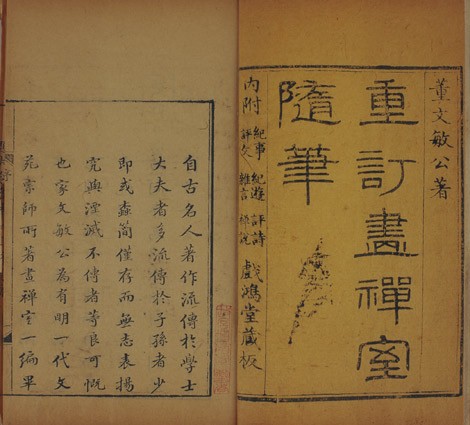 董文敏公著
重訂畫禪室
隨筆
內附
紀事 紀遊 評詩
評文 雜言 禪說
戲鴻堂藏板
自古名人著作流傳於學士
大夫者多流傳於子孫者少
即或蠹簡僅存而無志表揚
究與湮滅不傳者等良可慨
也家文敏公為有明一代文
苑宗師所著畫禪室一編單